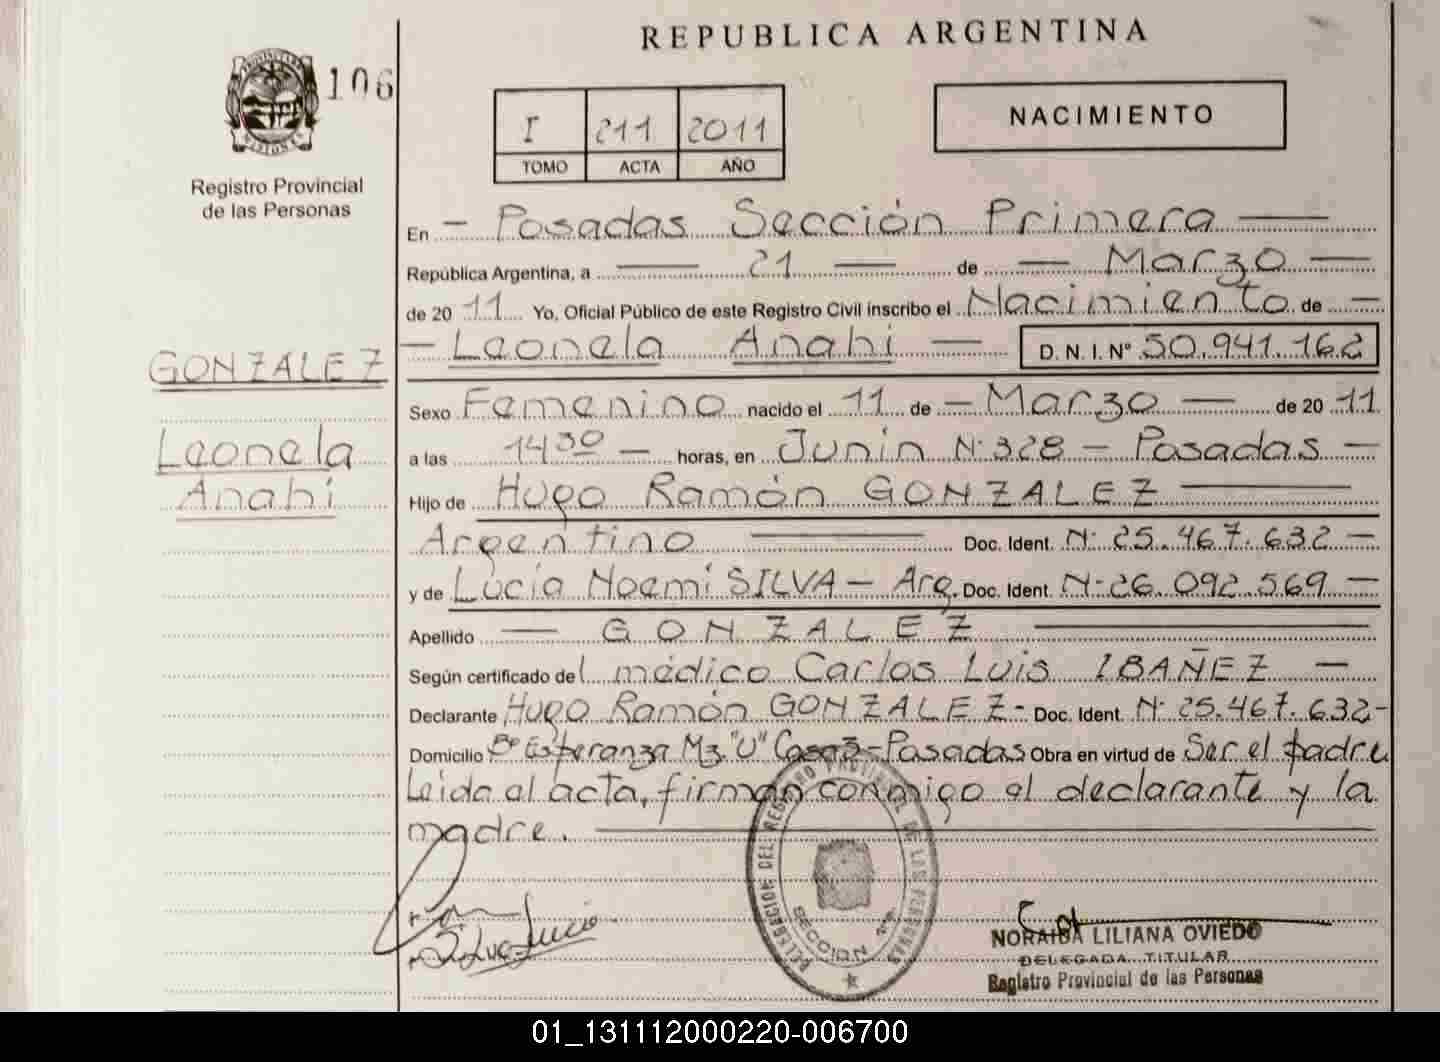 REPUBLICA ARGENTINA
106
PROVINCIA DE MISIONES
Registro Provincial
de las Personas
I 211 2011
TOMO ACTA AÑO
NACIMIENTO
En — Posadas Sección Primera —
República Argentina, a — 21 — de — Marzo —
de 20 11 Yo, Oficial Público de este Registro Civil inscribo el Nacimiento de —
— Leonela Anahi — D. N. I. Nº 50.941.162
GONZALEZ
Leonela
Anahi
Sexo Femenino nacido el 11 de — Marzo — de 20 11
a las 14:30 — horas, en Junín Nº 328 — Posadas —
Hijo de Hugo Ramón GONZALEZ —
Argentino — Doc. Ident. Nº 25.467.632 —
y de Lucía Noemí SILVA — Arg. Doc. Ident. Nº 26.092.569 —
Apellido — GONZALEZ —
Según certificado del médico Carlos Luis IBAÑEZ —
Declarante Hugo Ramón GONZALEZ - Doc. Ident. Nº 25.467.632 -
Domicilio Bº Esperanza Mz. "U" Casa 3 - Posadas Obra en virtud de Ser el padre
Leida al acta, firman conmigo el declarante y la
madre. —
Silva Lucia
DELEGACION DEL REGISTRO PROVINCIAL DE LAS PERSONAS
SECCION 1ra
NORAIBA LILIANA OVIEDO
DELEGADA TITULAR
Registro Provincial de las Personas
01_131112000220-006700